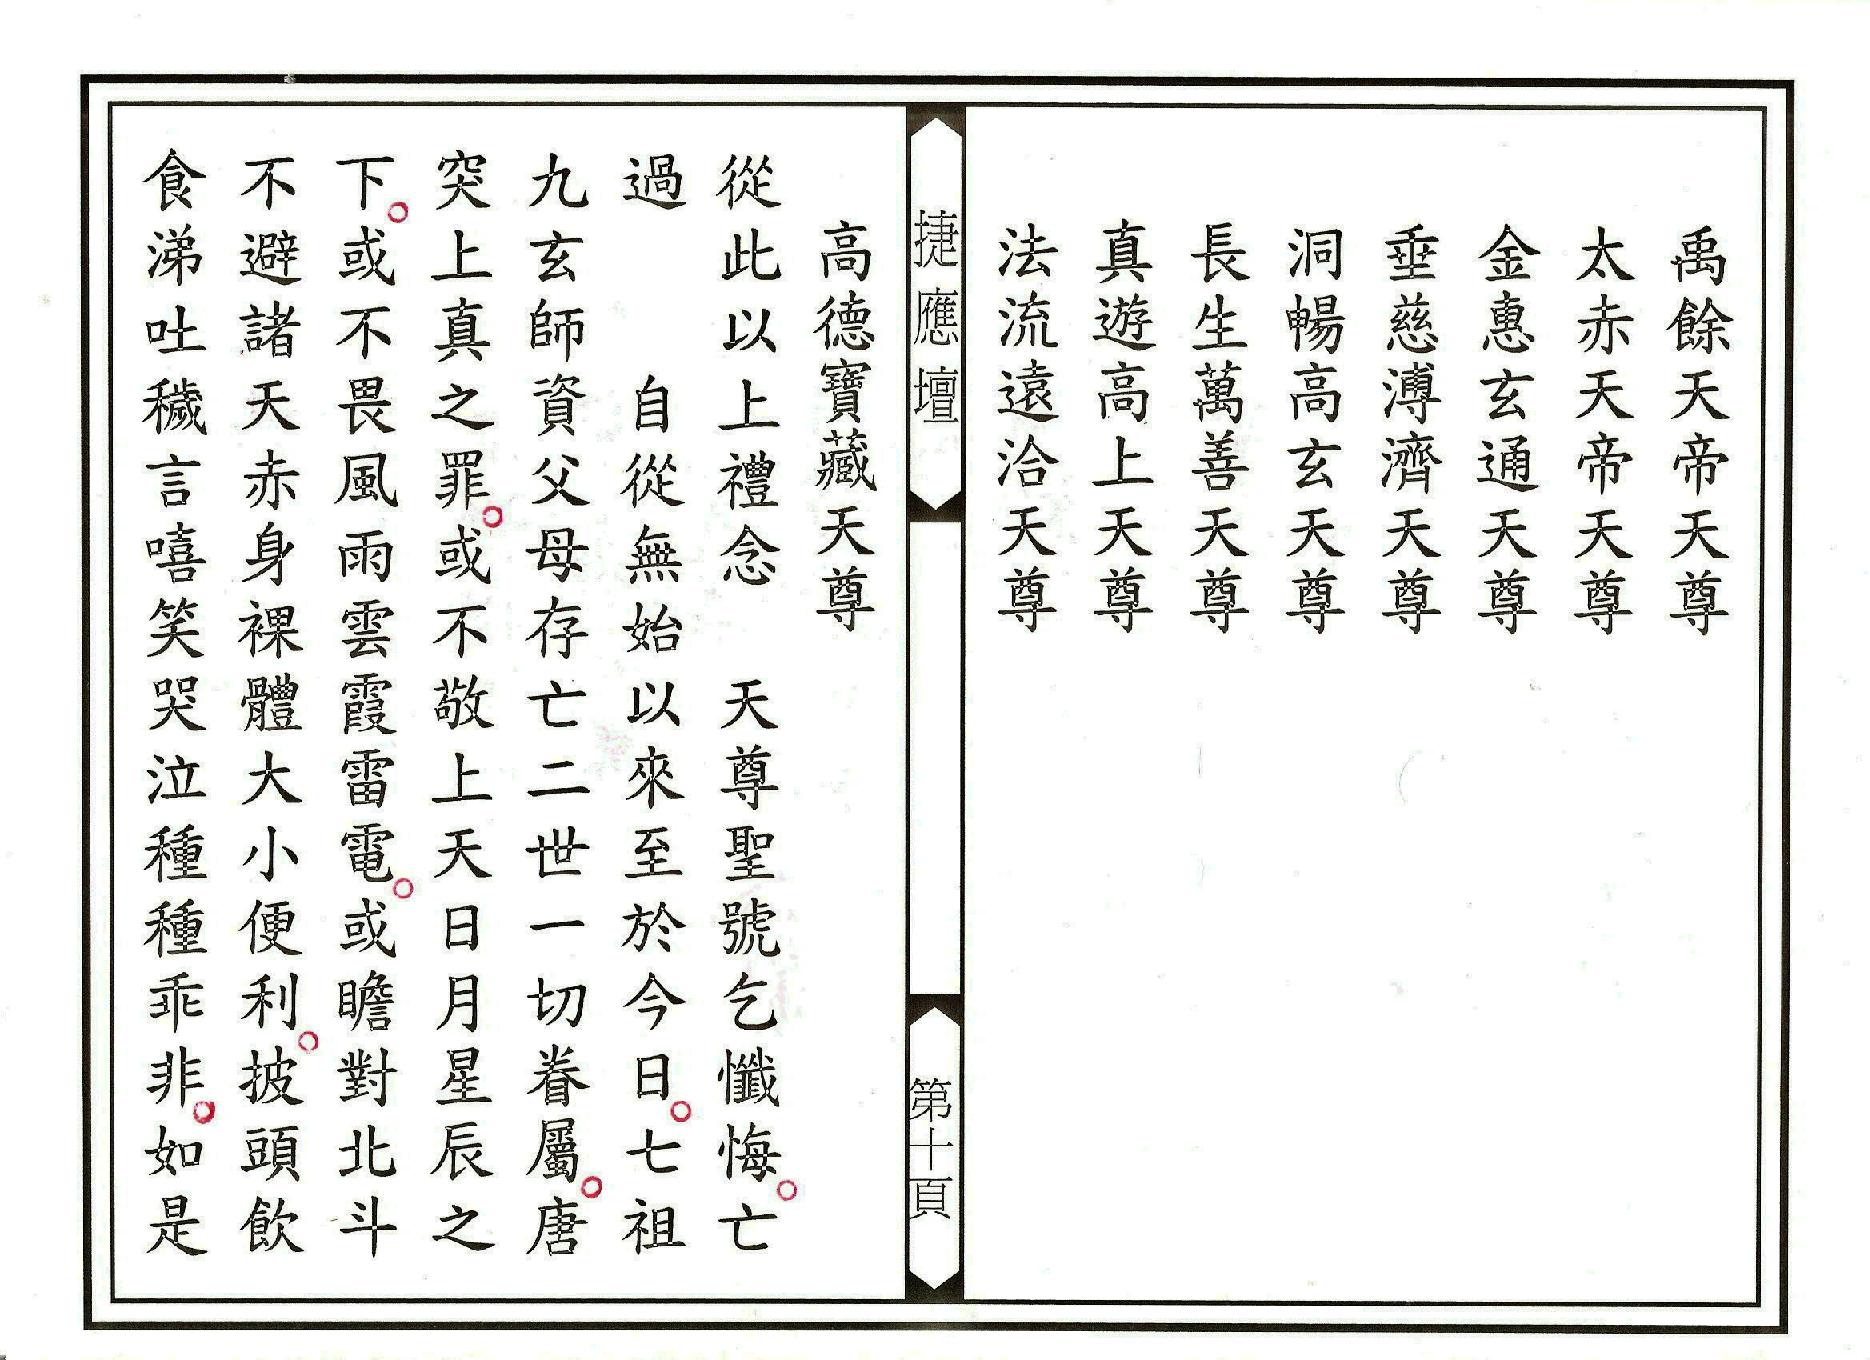 禹餘天帝天尊
太赤天帝天尊
金惠玄通天尊
垂慈溥濟天尊
洞暢高玄天尊
長生萬善天尊
真遊高上天尊
法流遠洽天尊
捷應壇
第十頁
高德寶藏天尊
從此以上禮念　天尊聖號乞懺悔。亡
過　　自從無始以來至於今日。七祖
九玄師資父母存亡二世一切眷屬。唐
突上真之罪。或不敬上天日月星辰之
下。或不畏風雨雲霞雷電。或瞻對北斗
不避諸天赤身裸體大小便利。披頭飲
食涕吐穢言嘻笑哭泣種種乖非。如是